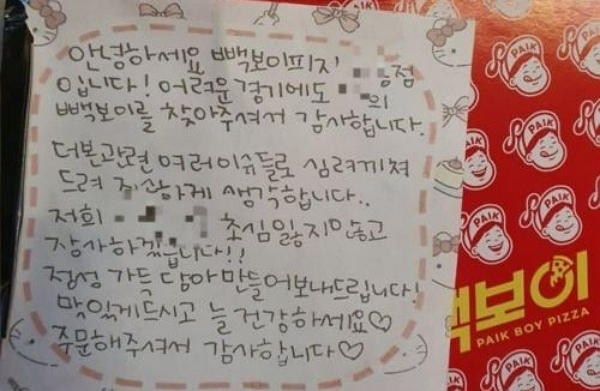 안녕하세요 빽보이피자
점
입니다! 어려운 경기에도 의
빽보이를 찾아주셔서 감사합니다.
더본관련 여러이슈들로 심려끼쳐
드려 죄송하게 생각합니다..
저희 초심 잃지않고
장사하겠습니다!!
정성 가득 담아 만들어보내드립니다!
맛있게드시고 늘 건강하세요♡
주문해주셔서 감사합니다♡
백보이
PAIK BOY PIZZA
PAIK
PAIK
PAIK
PAIK
PAIK
PAIK
PAIK